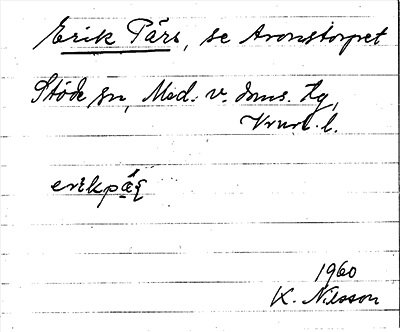 Erik Pärs, se Aronstorpet
Stöde sn, Med. v. doms. tg,
Vrnrl. l.
erikpäʂ
1960
K. Nilsson